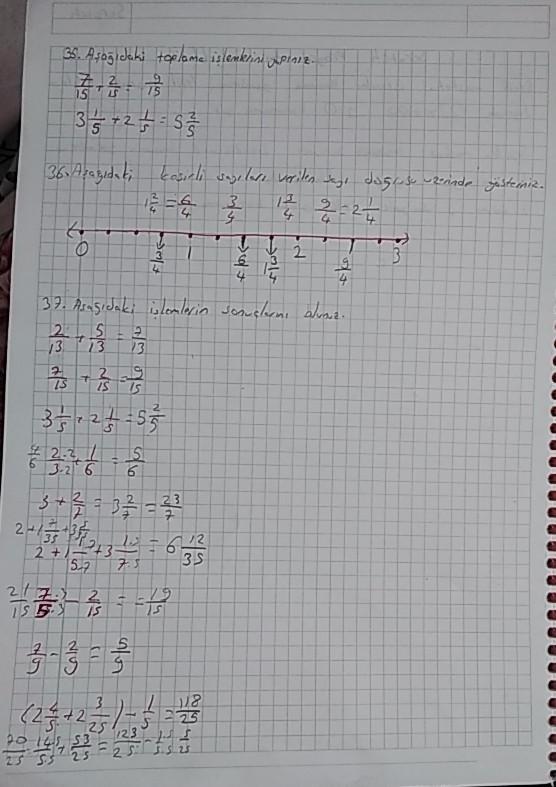 35. Aşağıdaki toplama işlemlerini yapınız.
7/15 + 2/15 = 9/15
3 1/5 + 2 1/5 = 5 2/5
36. Aşağıdaki kesirli sayıları verilen sayı doğrusu üzerinde gösteriniz.
1 2/4 = 6/4 3/4 1 3/4 9/4 = 2 1/4
0 3/4 1 6/4 1 3/4 2 9/4 3
37. Aşağıdaki işlemlerin sonuçlarını
2/13 + 5/13 = 7/13
7/15 + 2/15 = 9/15
3 1/5 + 2 1/5 = 5 2/5
4/6 2.2/3.2 + 1/6 = 5/6
3 + 2/7 = 3 2/7 = 23/7
2 + 1 7/35 + 3 5/35
2 + 1 1.7/5.7 + 3 1.5/7.5 = 6 12/35
21/15 7.3/5.3 - 2/15 = 19/15
7/9 - 2/9 = 5/9
(2 4/5 + 2 3/25) - 1/5 = 118/25
70/25 14.5/5.5 + 53/25 = 123/25 - 1.5/5.5 5/25